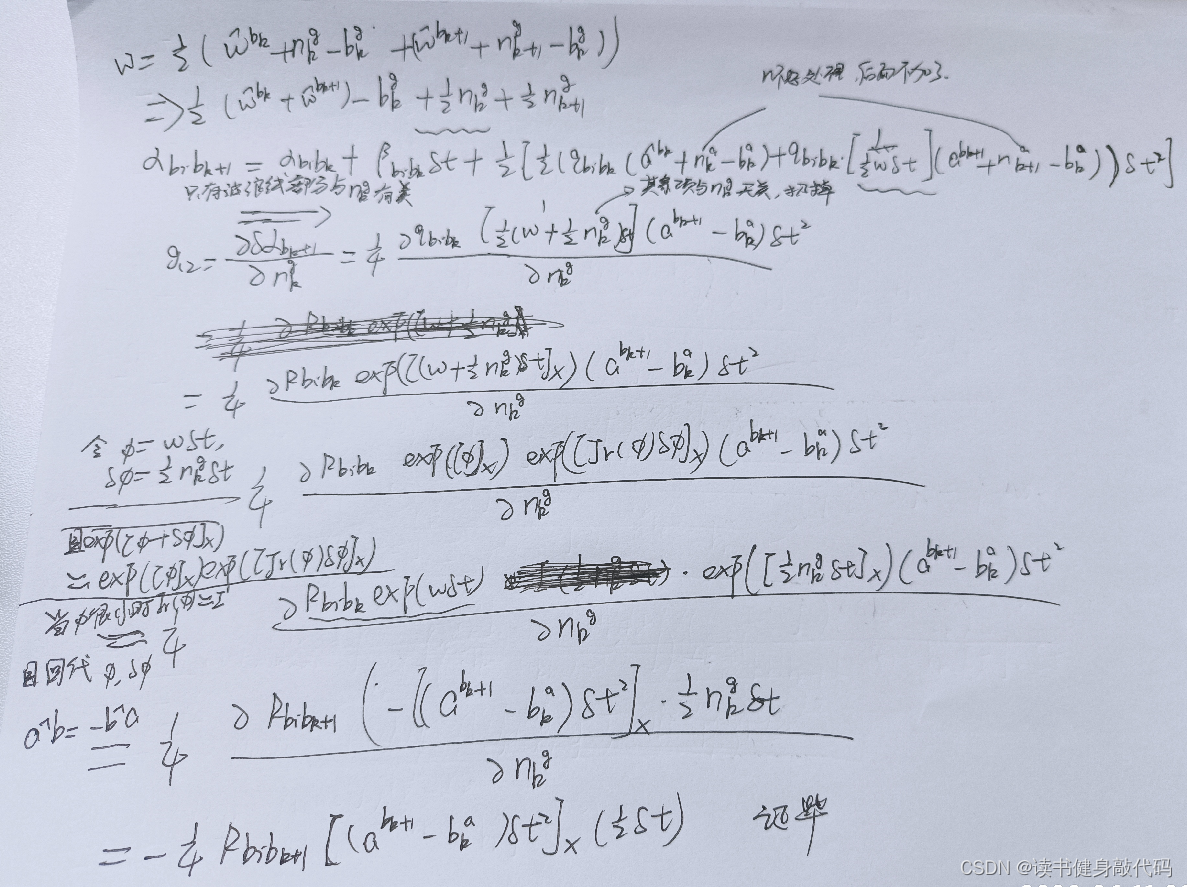 w = ½ ( ŵ^{b_k} + n_k^g - b_k^g + (ŵ^{b_{k+1}} + n_{k+1}^g - b_k^g ) )
=> ½ ( ŵ^{b_k} + ŵ^{b_{k+1}} ) - b_k^g + ½ n_k^g + ½ n_{k+1}^g
n 后面不加了.
α_{b_i b_{k+1}} = α_{b_i b_k} + β_{b_i b_k} δt + ½ [ ½ ( q_{b_i b_k} ( a^{b_k} + n_k^a - b_k^a ) + q_{b_i b_k} · [ 1 / ½wδt ] ( a^{b_{k+1}} + n_{k+1}^a - b_k^a ) ) δt² ]
只有波浪线部分与 n_k^g 有关
其余项与 n_k^g 无关,
g_{12} = ∂δα_{b_{k+1}} / ∂n_k^g = ¼ ∂q_{b_i b_k} [ 1 / ½(w + ½ n_k^g)δt ] ( a^{b_{k+1}} - b_k^a ) δt² / ∂n_k^g
= ¼ ∂R_{b_i b_k} exp([(w + ½ n_k^g)δt]_×) ( a^{b_{k+1}} - b_k^a ) δt² / ∂n_k^g
令 φ = wδt,
δφ = ½ n_k^g δt
¼ ∂R_{b_i b_k} exp([φ]_×) exp([Jr(φ)δφ]_×) ( a^{b_{k+1}} - b_k^a ) δt² / ∂n_k^g
且 exp([φ+δφ]_×)
= exp([φ]_×) exp([Jr(φ)δφ]_×)
当φ很小时 Jr(φ) = I
= ¼ ∂R_{b_i b_k} exp(wδt) · exp([½ n_k^g δt]_×) ( a^{b_{k+1}} - b_k^a ) δt² / ∂n_k^g
且回代 φ, δφ
a^b = -b^a
= ¼ ∂R_{b_i b_{k+1}} ( -[( a^{b_{k+1}} - b_k^a ) δt²]_× · ½ n_k^g δt / ∂n_k^g
= -¼ R_{b_i b_{k+1}} [( a^{b_{k+1}} - b_k^a ) δt²]_× (½δt) 证毕
CSDN @读书健身敲代码